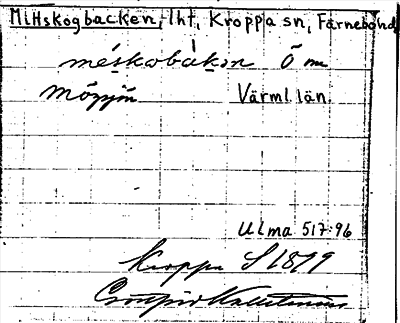 Mittskogbacken, lht, Kroppa sn, Färnebo hd,
méskobàkən Ö m
Värml. län.
Ulma 517:96
Kroppa S 1879